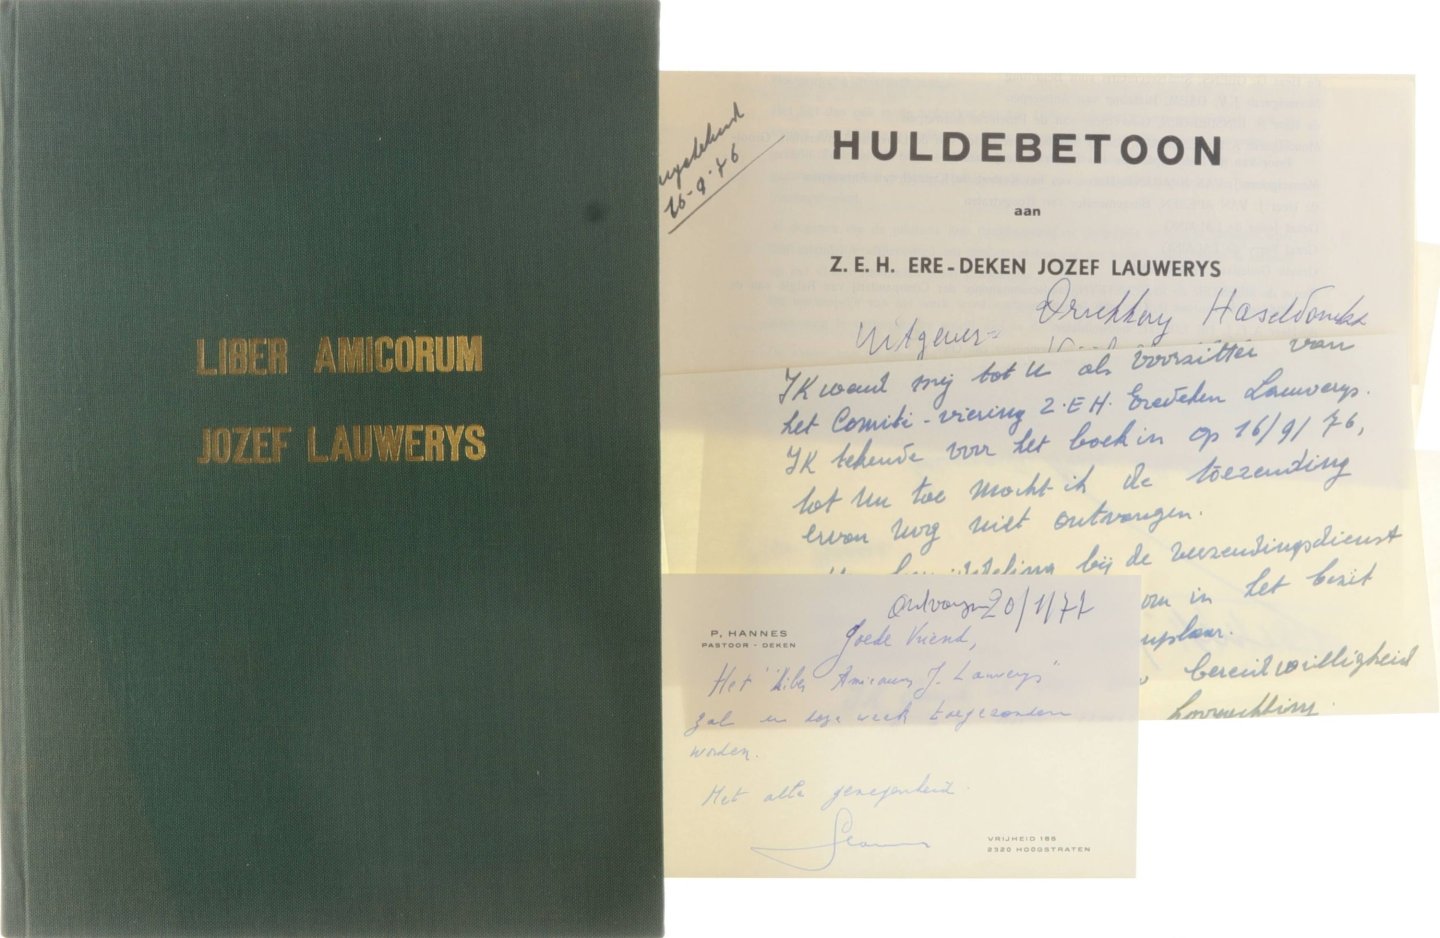 LIBER AMICORUM
JOZEF LAUWERYS
16-9-76
HULDEBETOON
aan
Z. E. H. ERE-DEKEN JOZEF LAUWERYS
Uitgever: Drukkery Haseldonckx
IK wend mij tot U als voorzitter van
het Comité-viering Z.E.H. Eredeken Lauwerys.
IK tekende voor het boek in op 16/9/76,
tot nu toe mocht ik de toezending
ervan nog niet ontvangen.
bij de verzendingsdienst
om in het bezit
bereidwilligheid
Ontvangen 20/1/77
P. HANNES
PASTOOR - DEKEN
Goede Vriend,
Het "Liber Amicorum J. Lauwerys"
zal u deze week toegezonden
worden.
Met alle genegenheid.
VRIJHEID 165
2320 HOOGSTRATEN